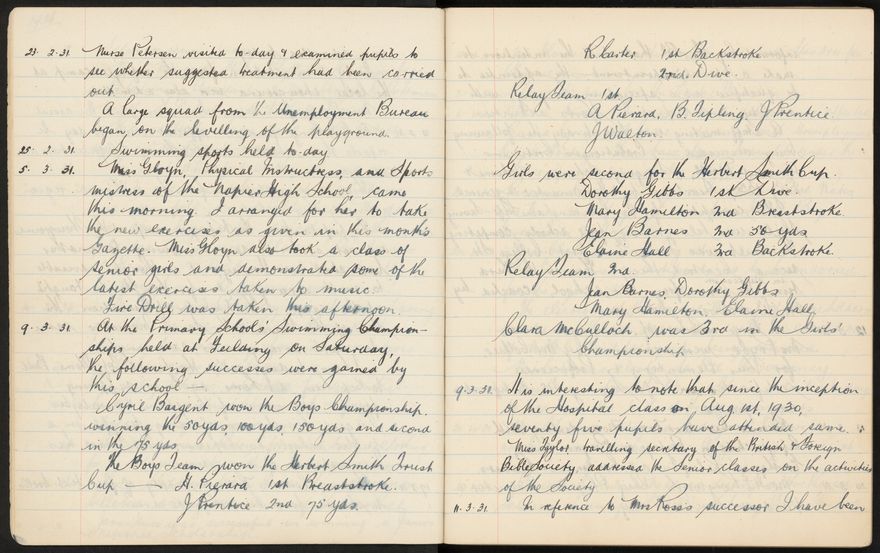 23. 2. 31. Nurse Petersen visited to-day & examined pupils to
see whether suggested treatment had been carried
out.
A large squad from the Unemployment Bureau
began on the levelling of the playground.
25. 2. 31. Swimming sports held to-day
5. 3. 31. Miss Gloyn, Physical Instructress, and Sports
mistress of the Napier High School, came
this morning. I arranged for her to take
the new exercises as given in this month's
Gazette. Miss Gloyn also took a class of
senior girls and demonstrated some of the
latest exercises taken to music.
Fire Drill was taken this afternoon.
9. 3. 31. At the Primary Schools' Swimming Champion-
ships held at Feilding on Saturday,
the following successes were gained by
this school —
Cyril Bargent won the Boys Championship.
winning the 50 yds, 100 yds, 150 yds and second
in the 75 yds
The Boys Team won the Herbert Smith Trust
Cup — A. Pierard 1st Breaststroke.
J Prentice 2nd 75 yds.
R Carter 1st Backstroke
2nd Dive.
Relay Team 1st
A Pierard, B. Tipling J Prentice
J Walton
Girls were second for the Herbert Smith Cup.
Dorothy Gibbs 1st Dive.
Mary Hamilton 2nd Breaststroke.
Jean Barnes 2nd 50 yds
Elaine Hall 2nd Backstroke.
Relay Team 2nd.
Jean Barnes, Dorothy Gibbs
Mary Hamilton, Elaine Hall,
Clara McCulloch was 3rd in the Girls'
Championship
9. 3. 31. It is interesting to note that since the inception
of the Hospital class on Aug 1st, 1930,
seventy five pupils have attended same.
Miss Taylor travelling secretary of the British & Foreign
Bible Society addressed the Senior classes on the activities
of the Society
11. 3. 31. In reference to Mrs Ross's successor I have been